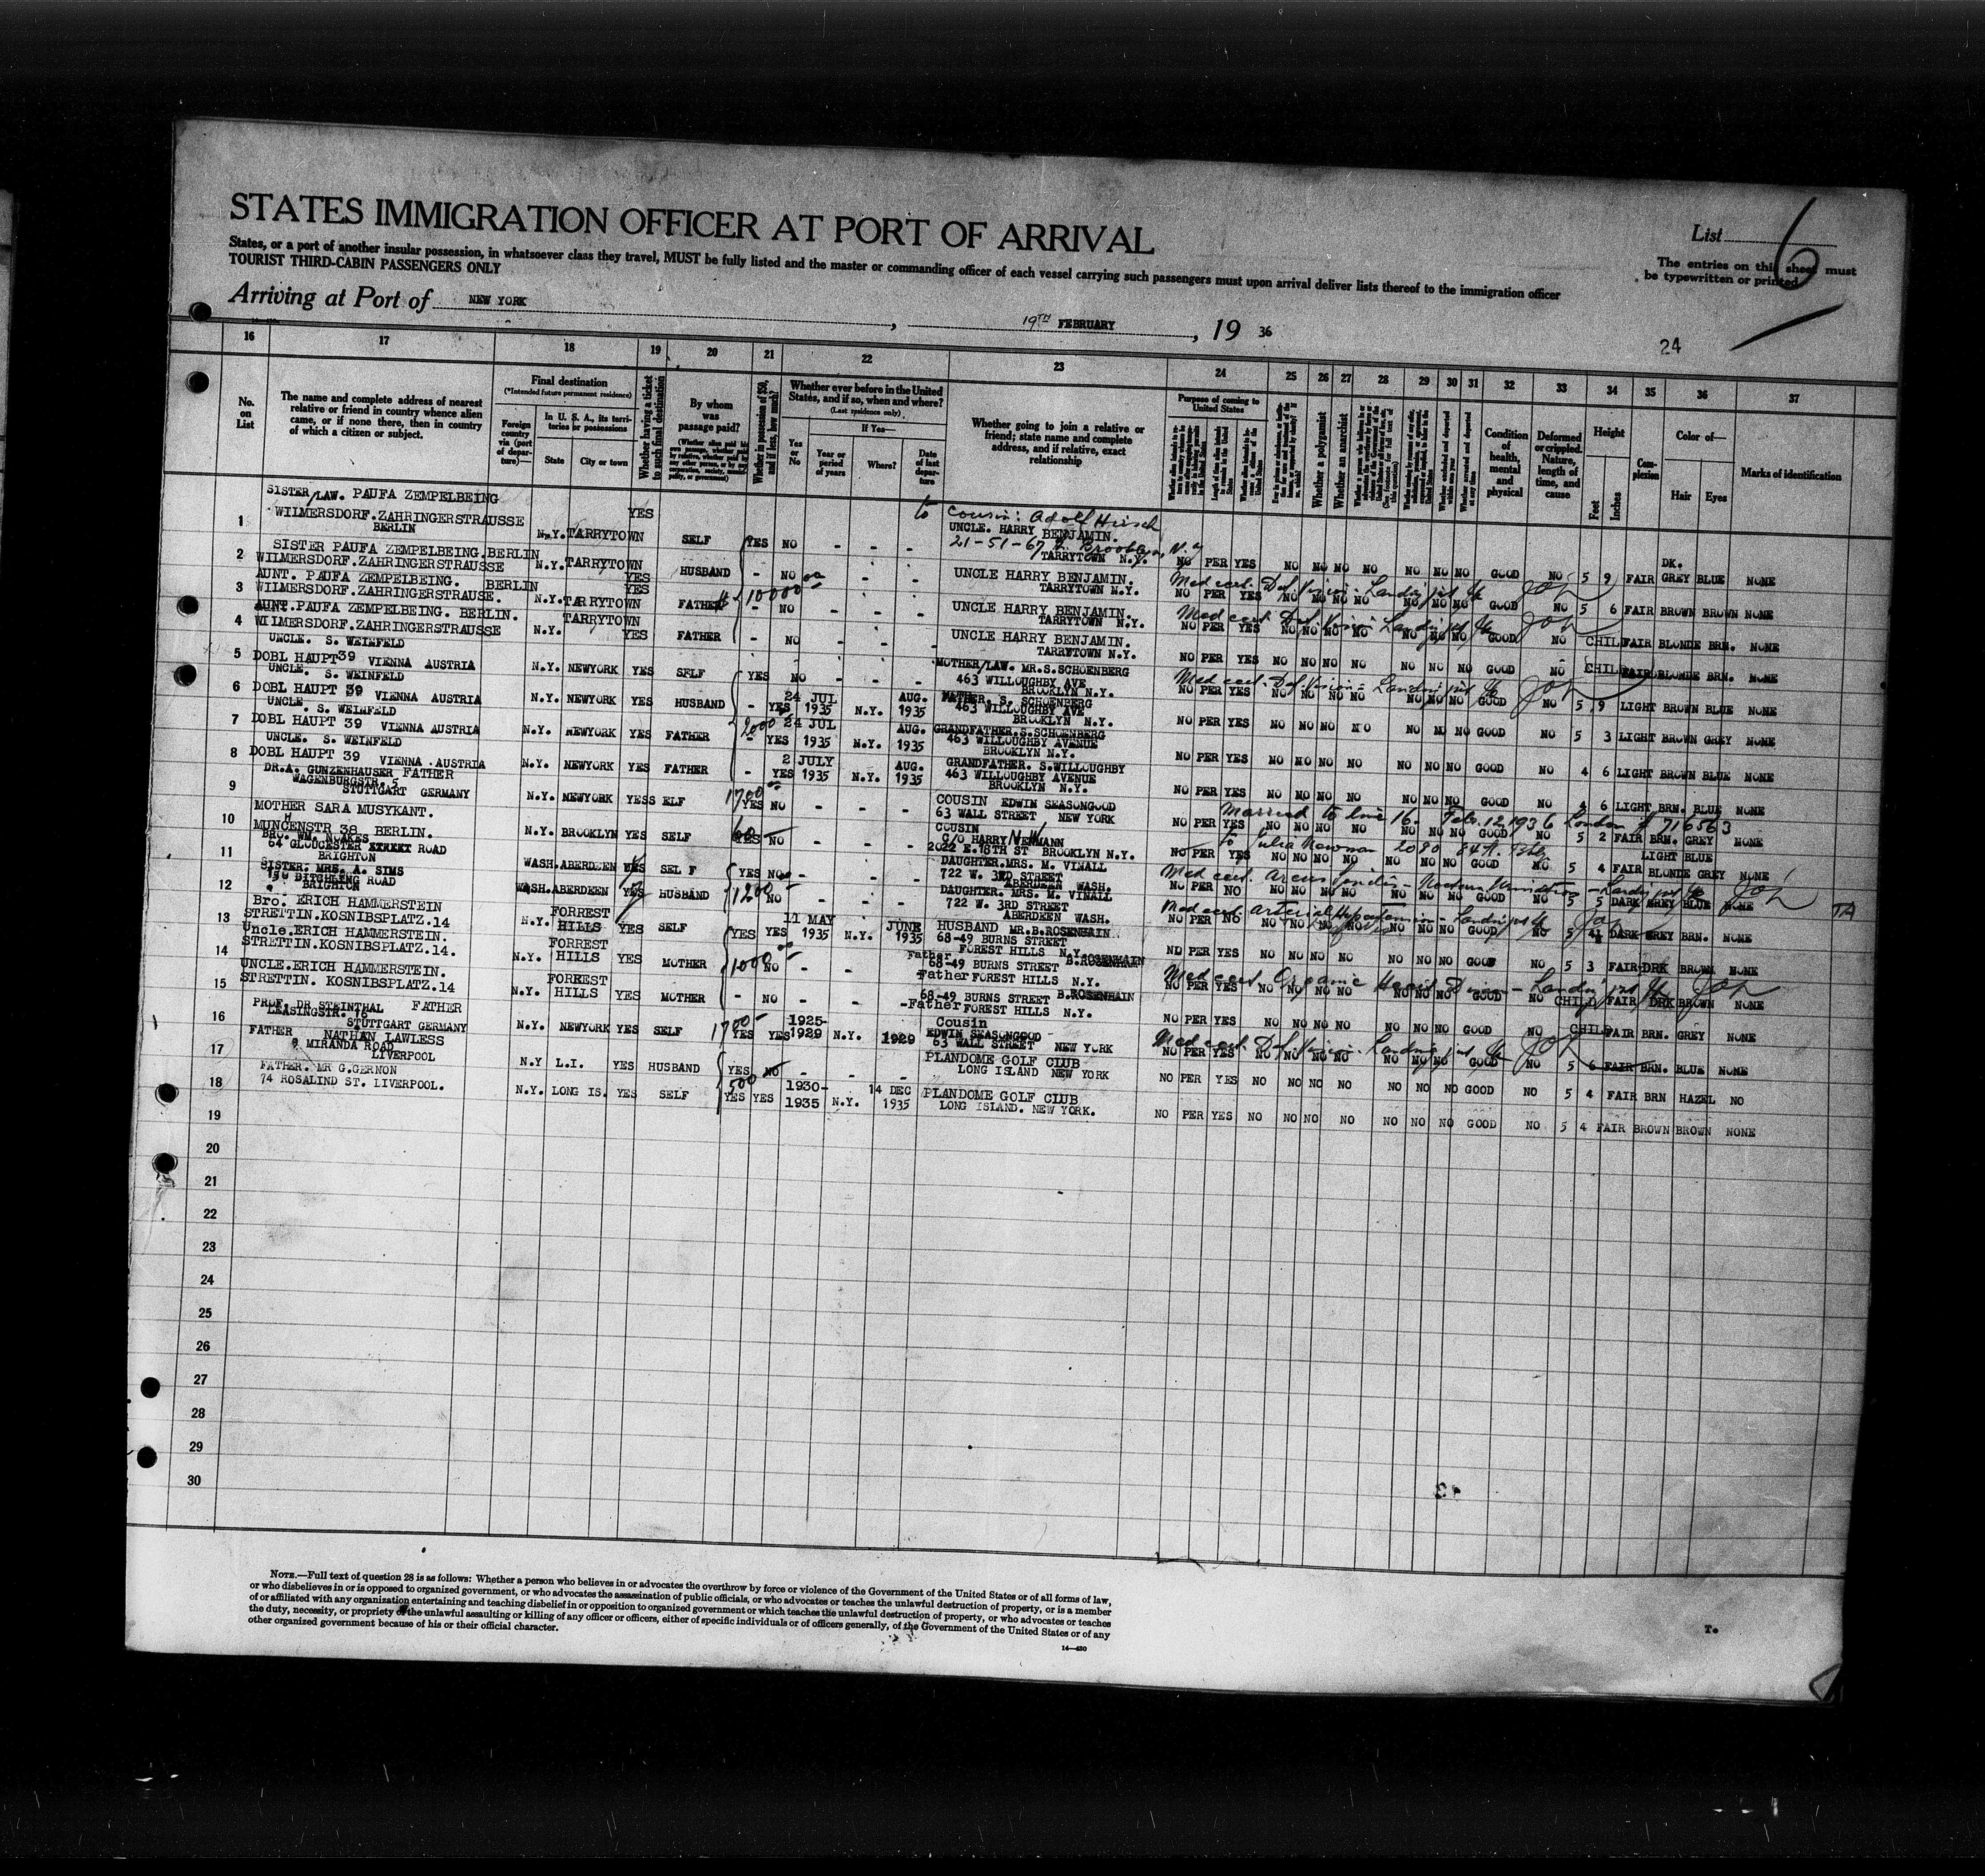 STATES IMMIGRATION OFFICER AT PORT OF ARRIVAL
List 6
States, or a port of another insular possession, in whatsoever class they travel, MUST be fully listed and the master or commanding officer of each vessel carrying such passengers must upon arrival deliver lists thereof to the immigration officer
The entries on this sheet must
be typewritten or printed
TOURIST THIRD-CABIN PASSENGERS ONLY
Arriving at Port of NEW YORK , 19TH FEBRUARY , 19 36
24
16 17 18 19 20 21 22 23 24 25 26 27 28 29 30 31 32 33 34 35 36 37
No. on List
The name and complete address of nearest relative or friend in country whence alien came, or if none there, then in country of which a citizen or subject.
Final destination
(*Intended future permanent residence)
Foreign country via (port of departure)—
In U. S. A., its territories or possessions
State City or town
Whether having a ticket to such final destination
By whom was passage paid?
Whether in possession of $50, and if less, how much?
Whether ever before in the United States, and if so, when and where?
(Last residence only)
If Yes—
Yes or No
Year or period of years
Where?
Date of last departure
Whether going to join a relative or friend; state name and complete address, and if relative, exact relationship
Purpose of coming to United States
Whether a polygamist
Whether an anarchist
Condition of health, mental and physical
Deformed or crippled. Nature, length of time, and cause
Height
Feet Inches
Complexion
Color of—
Hair Eyes
Marks of identification
1 SISTER/LAW. PAUFA ZEMPELBEING
WILMERSDORF.ZAHRINGERSTRAUSSE
BERLIN
N.Y. TARRYTOWN YES SELF YES NO - - - to Cousin: Adolf Hirsch
UNCLE. HARRY BENJAMIN.
TARRYTOWN N.Y.
NO PER YES NO NO NO NO NO NO NO GOOD NO 5 9 FAIR DK. GREY BLUE NONE
2 SISTER PAUFA ZEMPELBEING.BERLIN
WILMERSDORF.ZAHRINGERSTRAUSSE
N.Y. TARRYTOWN YES HUSBAND - NO - - - UNCLE HARRY BENJAMIN.
TARRYTOWN N.Y.
NO PER YES NO NO NO NO NO NO NO GOOD NO 5 6 FAIR BROWN BROWN NONE
3 AUNT. PAUFA ZEMPELBEING. BERLIN
WILMERSDORF.ZAHRINGERSTRAUSE.
N.Y. TARRYTOWN YES FATHER 10000 - NO - - - UNCLE HARRY BENJAMIN.
TARRYTOWN N.Y.
NO PER YES NO NO NO NO NO NO NO GOOD NO CHILD FAIR BLONDE BRN. NONE
4 AUNT.PAUFA ZEMPELBEING. BERLIN.
WILMERSDORF.ZAHRINGERSTRAUSSE
N.Y. TARRYTOWN YES FATHER - NO - - - UNCLE HARRY BENJAMIN.
TARRYTOWN N.Y.
NO PER YES NO NO NO NO NO NO NO GOOD NO CHILD FAIR BLONDE BRN. NONE
5 UNCLE. S. WEINFELD
DOBL HAUPT 39 VIENNA AUSTRIA
N.Y. NEWYORK YES SELF YES NO - - - MOTHER/LAW. MR.S.SCHOENBERG
463 WILLOUGHBY AVE
BROOKLYN N.Y.
NO PER YES NO NO NO NO NO NO NO GOOD NO 5 9 LIGHT BROWN BLUE NONE
6 UNCLE. S. WEINFELD
DOBL HAUPT 39 VIENNA AUSTRIA
N.Y. NEWYORK YES HUSBAND - YES 24 JUL 1935 N.Y. AUG. 1935 FATHER. S. SCHOENBERG
463 WILLOUGHBY AVE
BROOKLYN N.Y.
NO PER YES NO NO NO NO NO NO NO GOOD NO 5 3 LIGHT BROWN GREY NONE
7 UNCLE. S. WEINFELD
DOBL HAUPT 39 VIENNA AUSTRIA
N.Y. NEWYORK YES FATHER 2000 - YES 24 JUL 1935 N.Y. AUG. 1935 GRANDFATHER.S.SCHOENBERG
463 WILLOUGHBY AVENUE
BROOKLYN N.Y.
NO PER YES NO NO NO NO NO NO NO GOOD NO 4 6 LIGHT BROWN BLUE NONE
8 UNCLE. S. WEINFELD
DOBL HAUPT 39 VIENNA .AUSTRIA
N.Y. NEWYORK YES FATHER - YES 2 JULY 1935 N.Y. AUG. 1935 GRANDFATHER. S.WILLOUGHBY
463 WILLOUGHBY AVENUE
BROOKLYN N.Y.
NO PER YES NO NO NO NO NO NO NO GOOD NO 4 6 LIGHT BRN. BLUE NONE
9 DR.A. GUNZENHAUSER FATHER
WAGENBURGSTR. 5
STUTTGART GERMANY
N.Y. NEWYORK YESS ELF 1700 YES NO - - - COUSIN EDWIN SEASONGOOD
63 WALL STREET NEW YORK
Married to line 16. Feb. 12, 1936 London # 716563
NO PER YES NO NO NO NO NO NO NO GOOD NO 5 2 FAIR BRN. GREY NONE
10 MOTHER SARA MUSYKANT.
MUNCENSTR 38 BERLIN.
N.Y. BROOKLYN YES SELF 60 YES NO - - - COUSIN
C/O HARRY NEWMANN
2022 E.18TH ST BROOKLYN N.Y.
to Julia Newman 2080 84
NO PER YES NO NO NO NO NO NO NO GOOD NO 5 4 FAIR LIGHT BLONDE BLUE GREY NONE
11 BRO. WM. NOAKES
64 GLOUCESTER STREET ROAD
BRIGHTON
WASH.ABERDEEN YES SELF YES NO - - - DAUGHTER.MRS. M. VINALL
722 W. 3RD STREET
ABERDEEN WASH.
NO PER NO NO NO NO NO NO NO NO GOOD NO 5 5 DARK GREY BLUE NONE
12 SISTER. MRS. A. SIMS
150 DITCHLING ROAD
BRIGHTON
WASH.ABERDEEN YES HUSBAND 1200 NO - - - DAUGHTER. MRS. M. VINALL
722 W. 3RD STREET
ABERDEEN WASH.
NO PER NO NO NO NO NO NO NO NO GOOD NO 5 4½ DARK GREY BRN. NONE
13 Bro. ERICH HAMMERSTEIN
STRETTIN.KOSNIBSPLATZ.14
N.Y. FORREST HILLS YES SELF YES YES 11 MAY 1935 N.Y. JUNE 1935 HUSBAND MR.B.ROSENHAIN
68-49 BURNS STREET
FOREST HILLS N.Y.
NO PER YES NO NO NO NO NO NO NO GOOD NO 5 3 FAIR DRK BROWN NONE
14 Uncle.ERICH HAMMERSTEIN.
STRETTIN.KOSNIBSPLATZ.14.
N.Y. FORREST HILLS YES MOTHER 1000 NO - - - Father B.ROSENHAIN
68-49 BURNS STREET
FOREST HILLS N.Y.
NO PER YES NO NO NO NO NO NO NO GOOD NO CHILD FAIR DRK BROWN NONE
15 UNCLE.ERICH HAMMERSTEIN.
STRETTIN. KOSNIBSPLATZ.14
N.Y. FORREST HILLS YES MOTHER - NO - - - Father B.ROSENHAIN
68-49 BURNS STREET
FOREST HILLS N.Y.
NO PER YES NO NO NO NO NO NO NO GOOD NO CHILD FAIR BRN. GREY NONE
16 PROF. DR STEINTHAL FATHER
LEASINGSTR. 16
STUTTGART GERMANY
N.Y. NEWYORK YES SELF 1700 YES YES 1925-1929 N.Y. 1929 Cousin
EDWIN SEASONGOOD
63 WALL STREET NEW YORK
NO PER YES NO NO NO NO NO NO NO GOOD NO 5 6 FAIR BRN. BLUE NONE
17 FATHER NATHAN LAWLESS
8 MIRANDA ROAD
LIVERPOOL
N.Y L.I. YES HUSBAND YES NO - - - PLANDOME GOLF CLUB
LONG ISLAND NEW YORK
NO PER YES NO NO NO NO NO NO NO GOOD NO 5 4 FAIR BRN HAZEL NO
18 FATHER. MR G.GERNON
74 ROSALIND ST. LIVERPOOL.
N.Y. LONG IS. YES SELF 500 YES YES 1930-1935 N.Y. 14 DEC 1935 PLANDOME GOLF CLUB
LONG ISLAND. NEW YORK.
NO PER YES NO NO NO NO NO NO NO GOOD NO 5 4 FAIR BROWN BROWN NONE
19
20
21
22
23
24
25
26
27
28
29
30
NOTE.—Full text of question 28 is as follows: Whether a person who believes in or advocates the overthrow by force or violence of the Government of the United States or of all forms of law,
or who disbelieves in or is opposed to organized government, or who advocates the assassination of public officials, or who advocates or teaches the unlawful destruction of property, or is a member
of or affiliated with any organization entertaining and teaching disbelief in or opposition to organized government or which teaches the unlawful destruction of property, or who advocates or teaches
the duty, necessity, or propriety of the unlawful assaulting or killing of any officer or officers, either of specific individuals or of officers generally, of the Government of the United States or of any
other organized government because of his or their official character.
14—430
T.